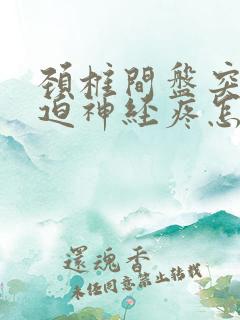 頚柱間盤突
迫神経疼怎
還魂香
未経同意禁止转载